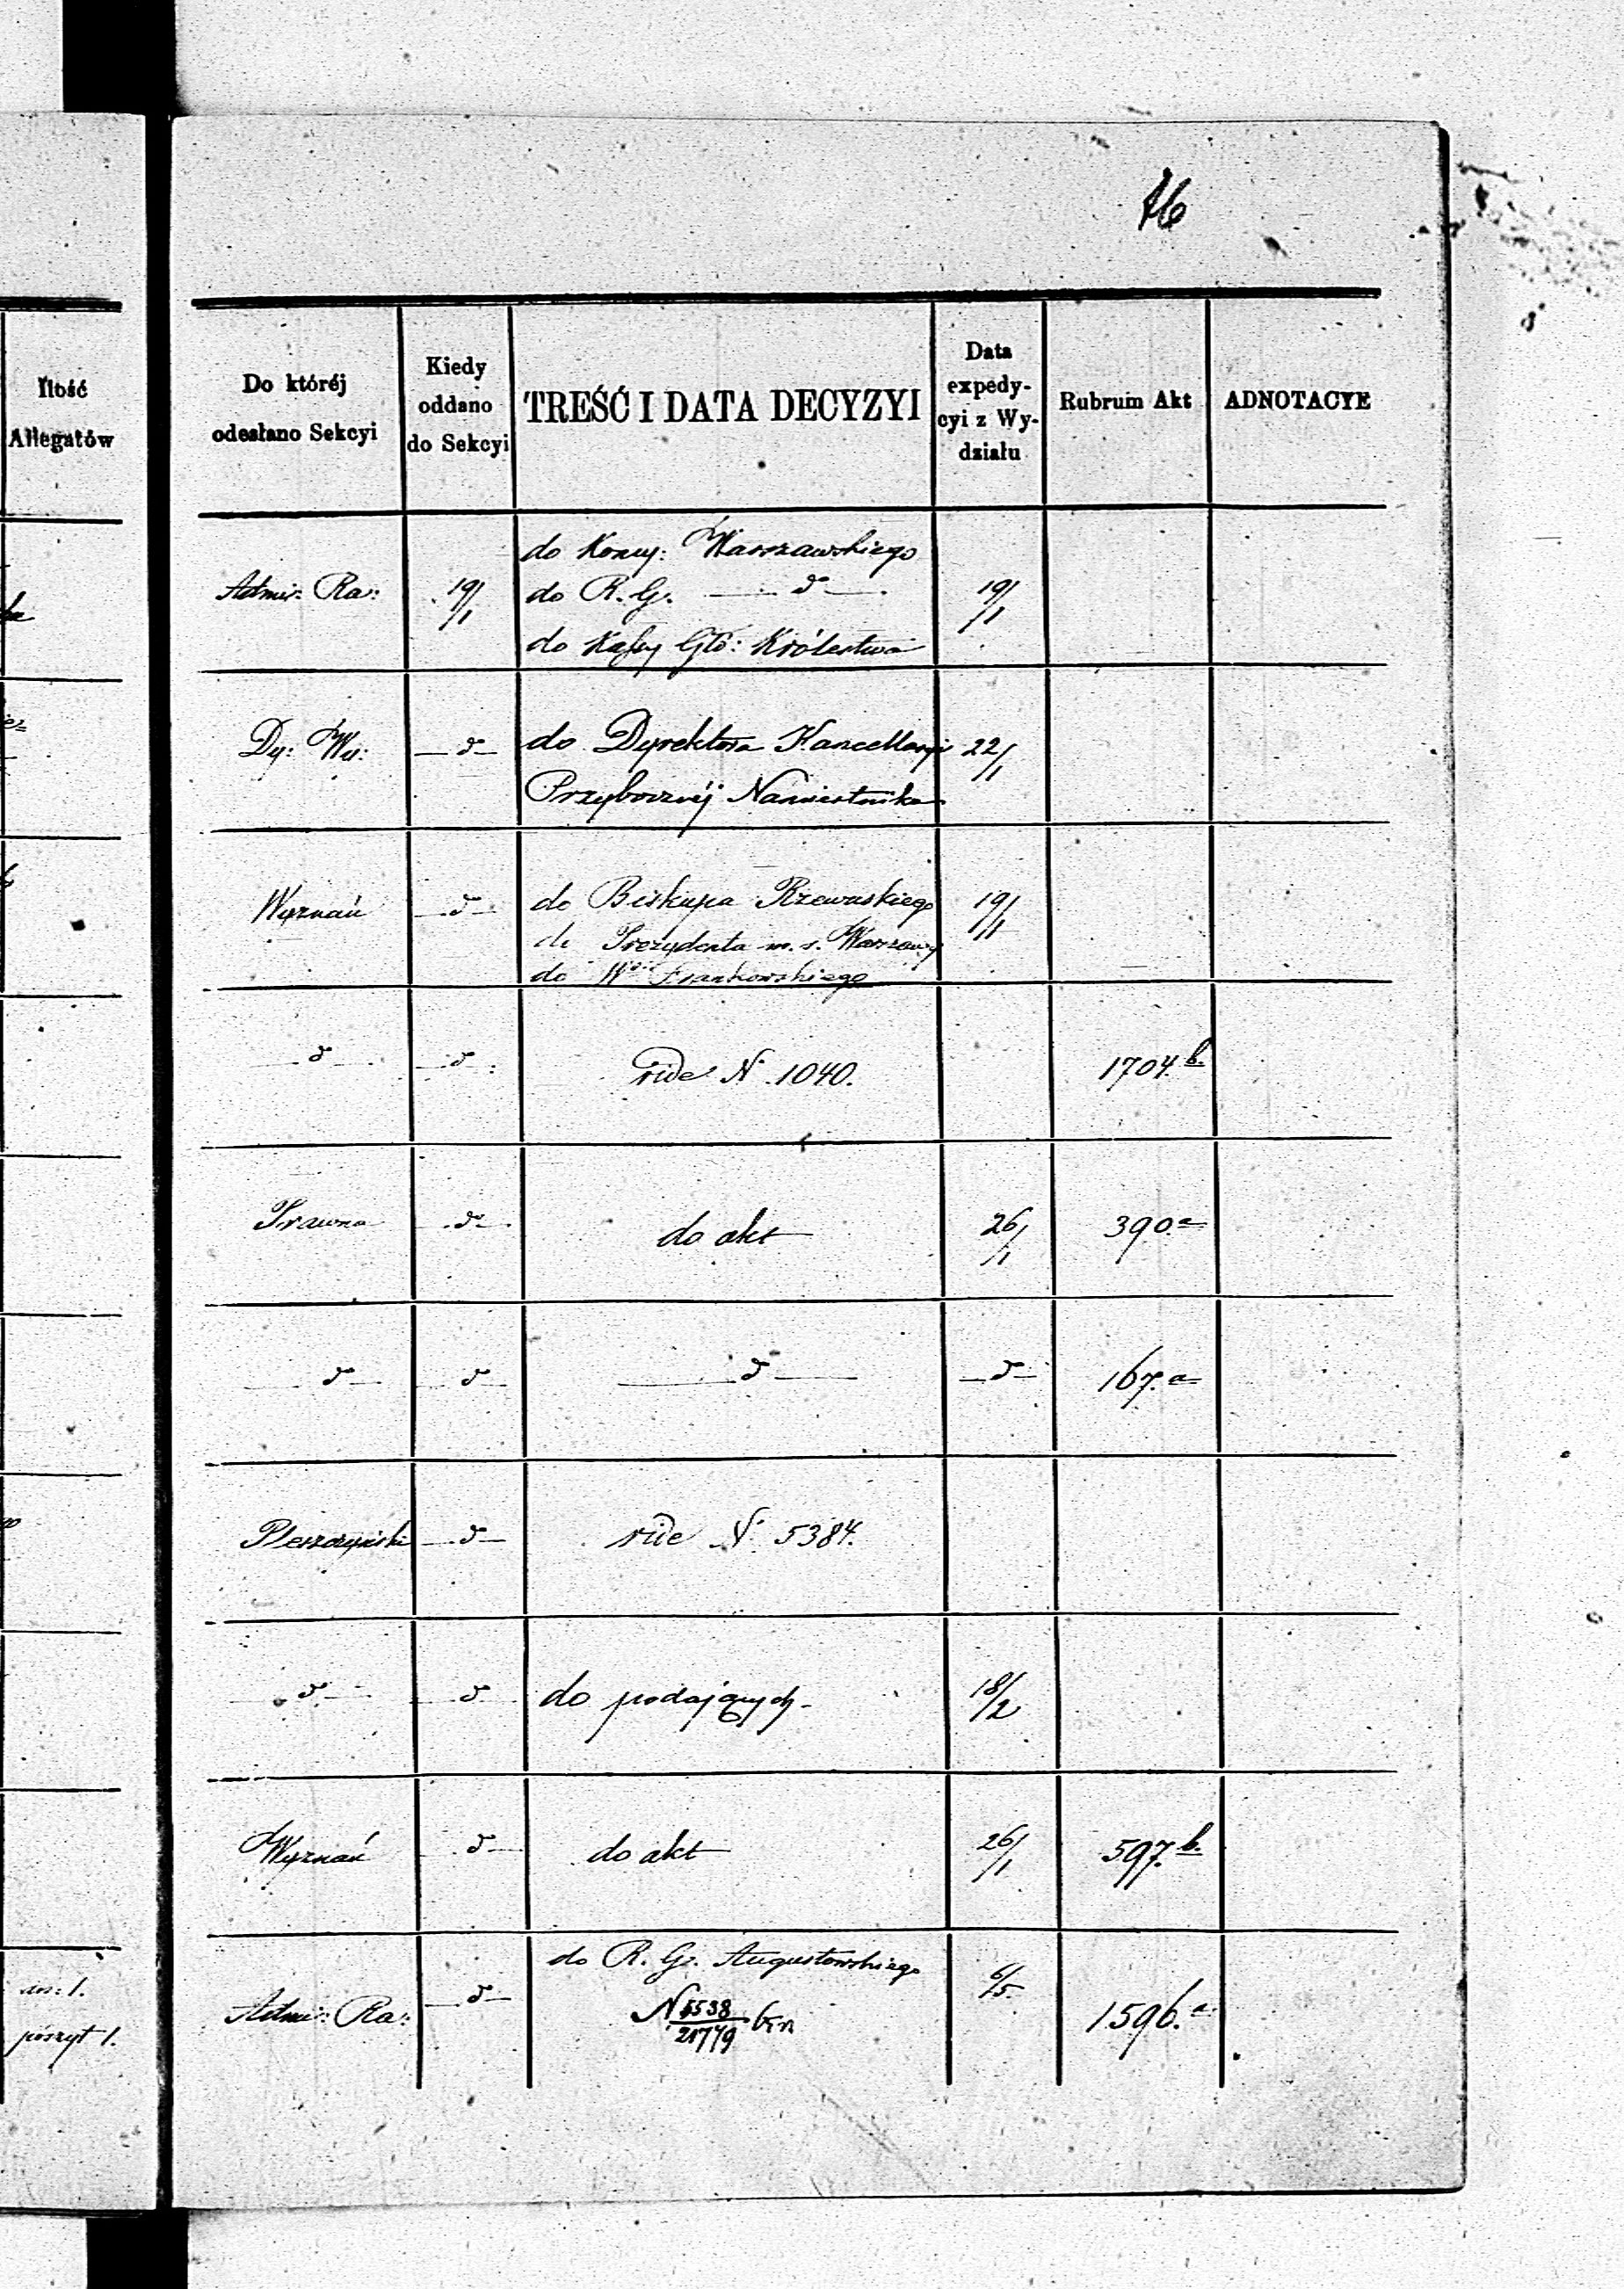 76
Ilość
Allegatów
Do któréj
odesłano Sekcyi
Kiedy
oddano
do Sekcyi
TREŚĆ I DATA DECYZYI
Data
expedy-
cyi z Wy-
działu
Rubrum Akt
ADNOTACYE
do Komy: Warszawskiego
Admi: Ra: 19/1 do R. G. — d° — 19/1
do Kassy Głó: Królestwa
Dy: Wy: — d° — do Dyrektora Kancellaryi 22/1
Przybocznéj Namiestnika
Wyznań — d° — do Biskupa Rzewuskiego 19/1
do Prezydenta m. s. Warszawy
do Wo Frankowskiego
— d° — — d° — vide N 1040. 1704.b.
Prawna — d° — do akt 26/1 390.a
— d° — — d° — — d° — — d° — 167.a
Pleszczyński — d° — vide N 5384.
— d° — — d° — do podających 18/2
Wyznań — d° — do akt 26/1 597.b.
do R. G. Augustowskiego
Admi: Ra: — d° — N 5538/21779 6/5 1596.a
an: 1.
poszyt 1.